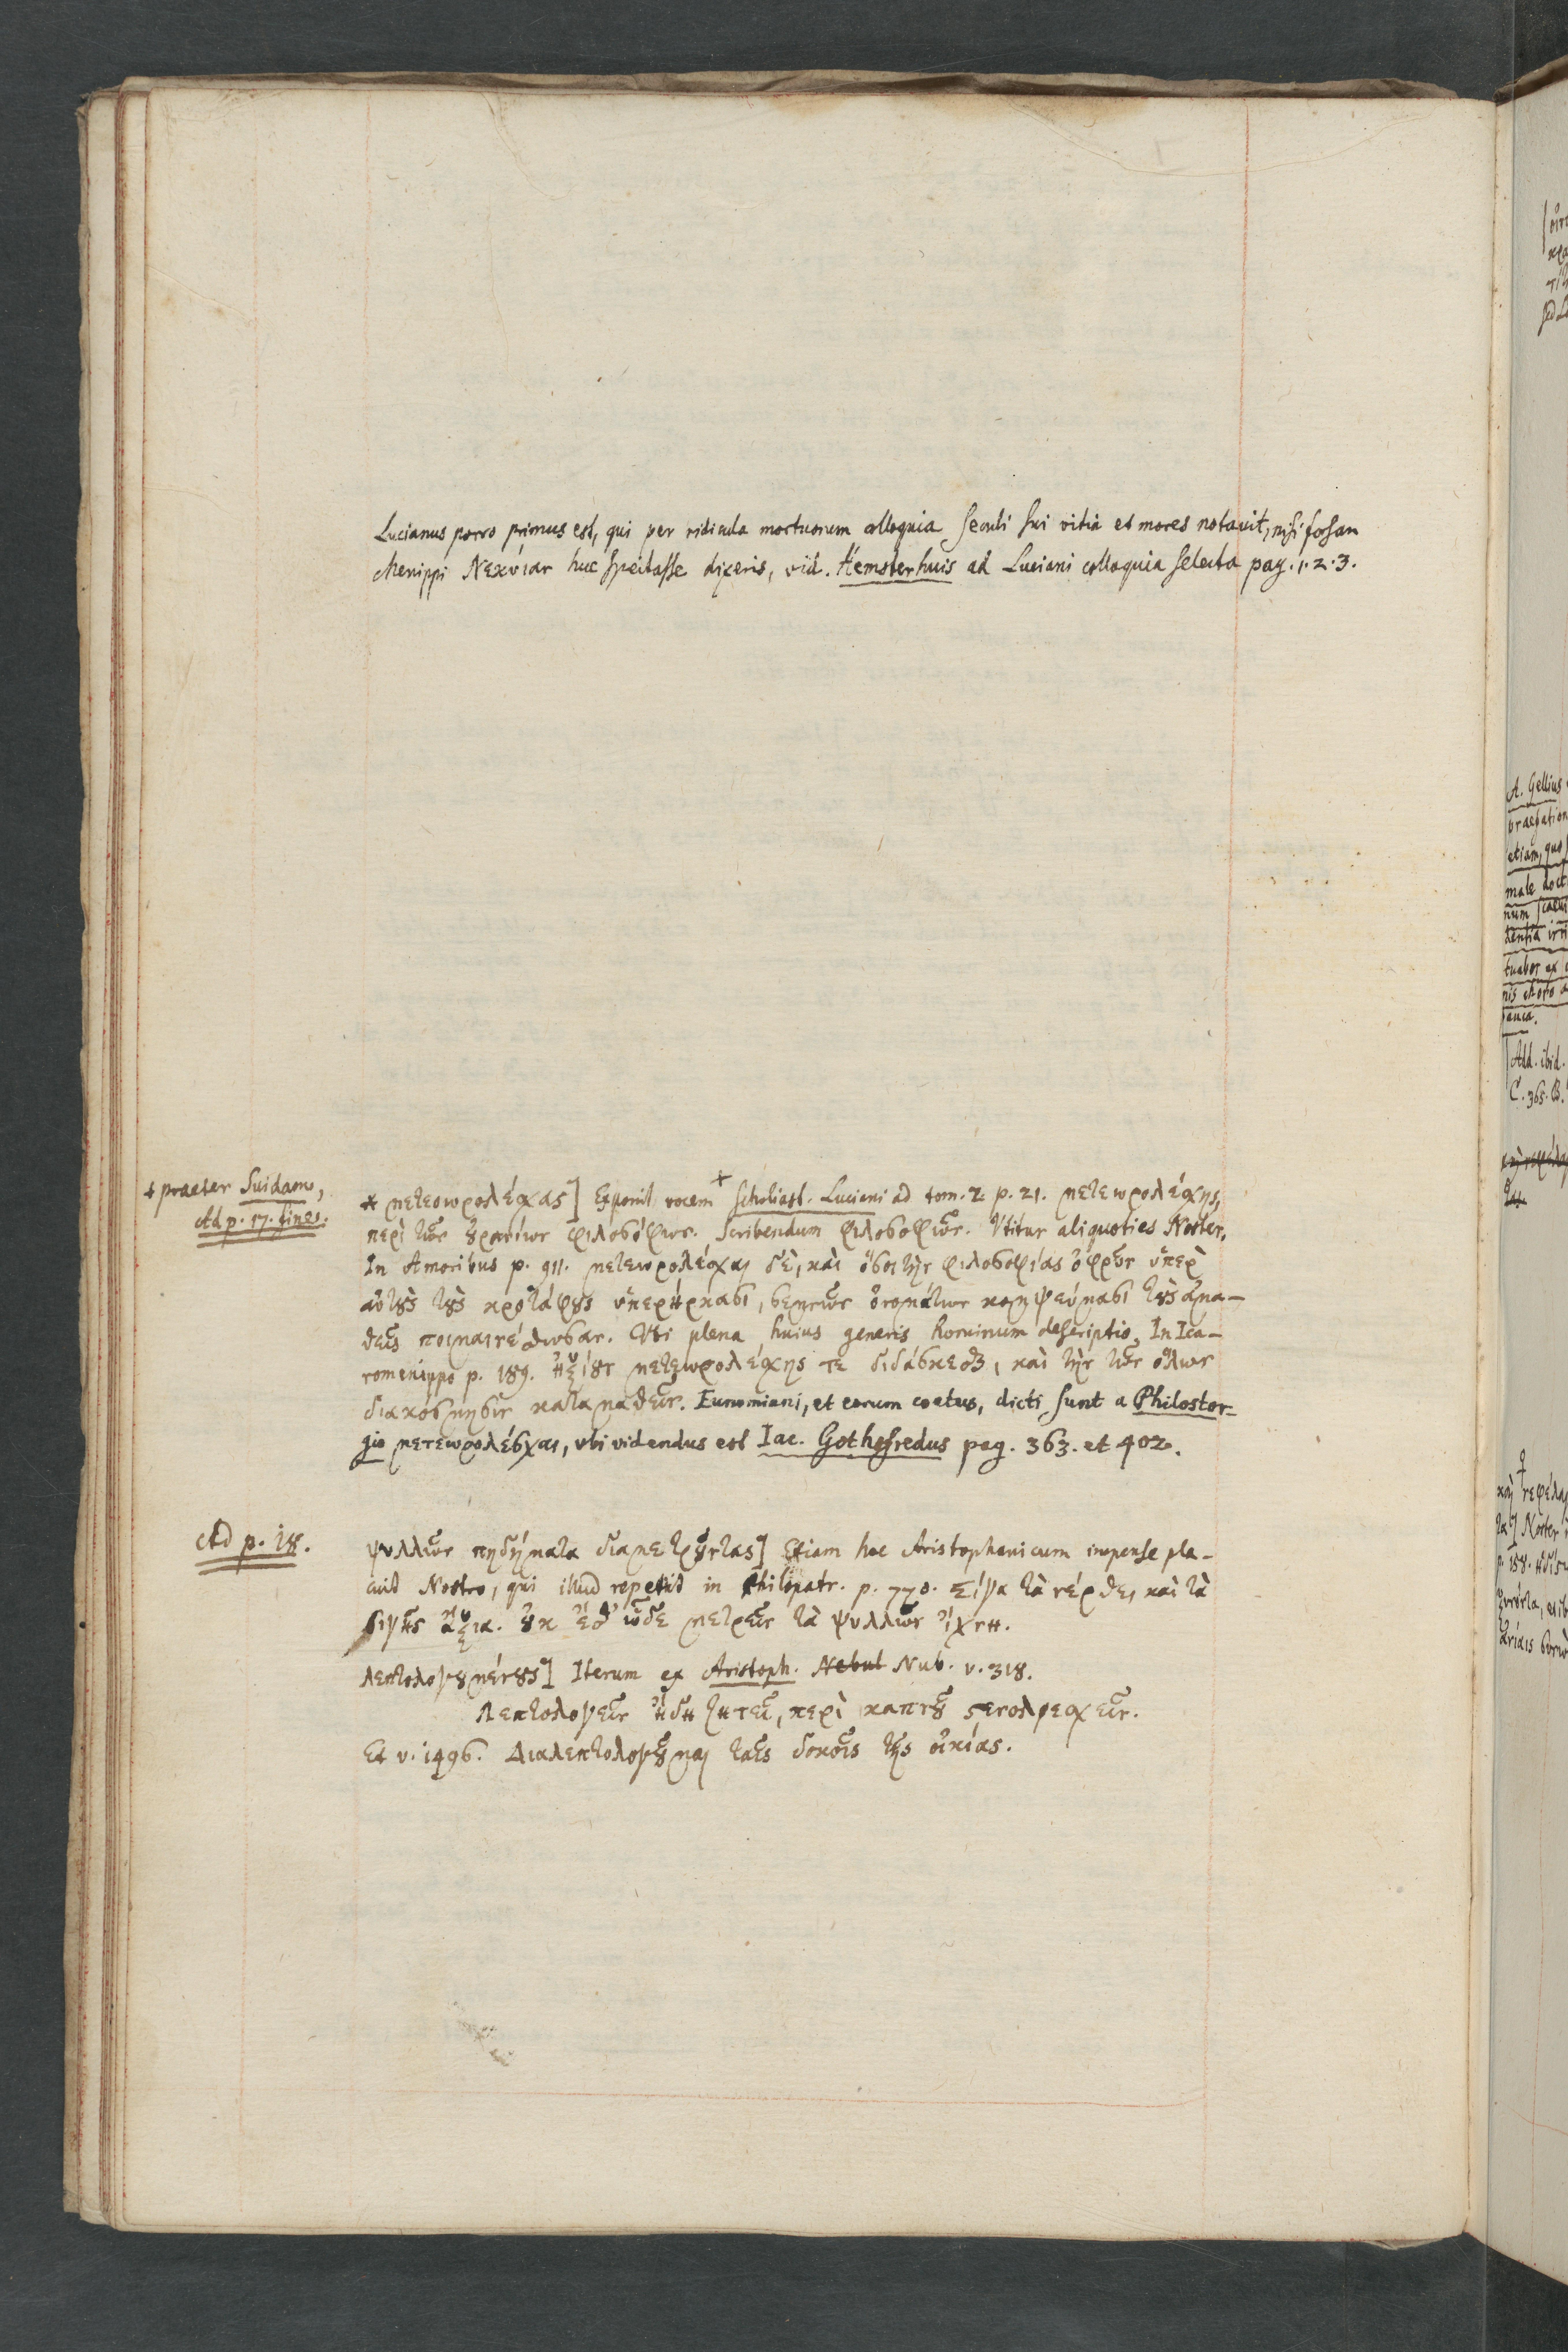 Lucianus porro primus est, qui per ridicula mortuorum colloquia seculi sui vitia et mores notavit, nisi forsan
Menippi Νεκυίαν huc spectasse dixeris, vid. Hemsterhuis ad Luciani colloquia selecta pag. 1. 2. 3.
+ praeter Suidam,
Ad p. 17. fines.
* μετεωρολέσχας] Exponit vocem + Scholiast. Luciani ad tom. 2 p. 21. μετεωρολέσχης,
περὶ τῶν ȣ̓ρανίων φιλοσόφων. Scribendum φιλοσοφῶν. Vtitur aliquoties Noster.
In Amoribus p. 911. μετεωρολέσχαι δὲ, καὶ ὅσοι τὴν φιλοσοφίας ὀφρῦν ὑπὲρ
αὐτȣ̀ς τȣ̀ς κροτάφȣς ὑπερήρκασι, σεμνῶν ὀνομάτων κομψεύμασι τȣ̀ς ἀμα-
θεῖς ποιμαινέτωσαν. Vbi plena huius generis hominum descriptio. In Ica-
romenippo p. 189. ἠξίȣν μετεωρολέσχης τε διδάσκεσθαι, καὶ τὴν τῶν ὅλων
διακόσμησιν καταμαθεῖν. Eunomiani, et eorum coetus, dicti sunt a Philostor-
gio μετεωρολέσχαι, vbi videndus est Iac. Gothofredus pag. 363. et 402.
Ad p. 18.
ψυλλῶν πηδήματα διαμετρȣ͂ντας] Etiam hoc Aristophanicum impense pla-
cuit Nostro, qui illud repetiit in Philopatr. p. 770. Σίγα τὰ νέρθε, καὶ τὰ
σιγῆς ἄξια. ȣ̓κ ἔσθ' ὧδε μετρεῖν τὰ ψυλλῶν ἴχνη.
λεπτολογȣμένȣς] Iterum ex Aristoph. Nebul Nub. v. 318.
Λεπτολογεῖν ἤδη ζητεῖ, περὶ καπνȣ͂ στενολρεσχεῖν.
Et v. 1496. Διαλεπτολογȣ͂μαι ταῖς δοκοῖς τῆς οἰκίας.
A. Gellius
etiam, quo
male doct
Add. ibid.
C. 365. B.